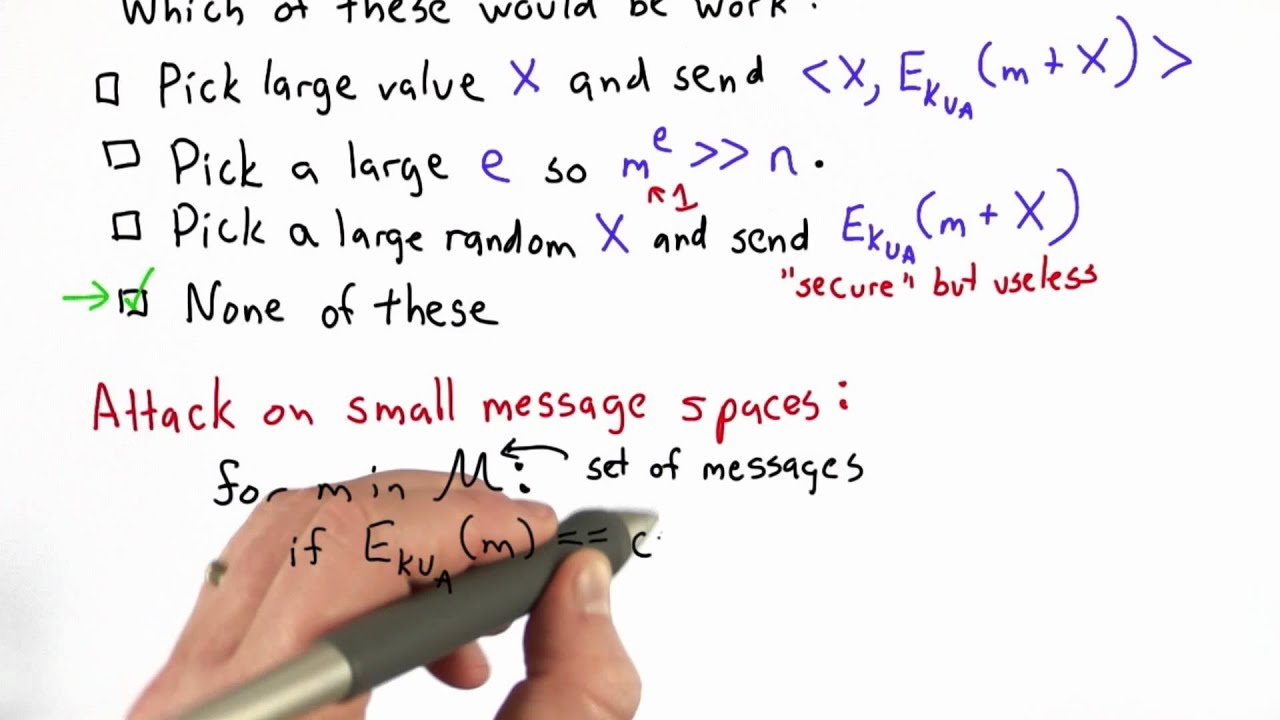 Which of these would be work?
□ Pick large value X and send <X, E_{KU_A}(m + X)>
□ Pick a large e so m^e >> n.
↖1
□ Pick a large random X and send E_{KU_A}(m + X)
"secure" but useless
→ ☑ None of these
Attack on small message spaces:
for m in M: ← set of messages
if E_{KU_A}(m) == c